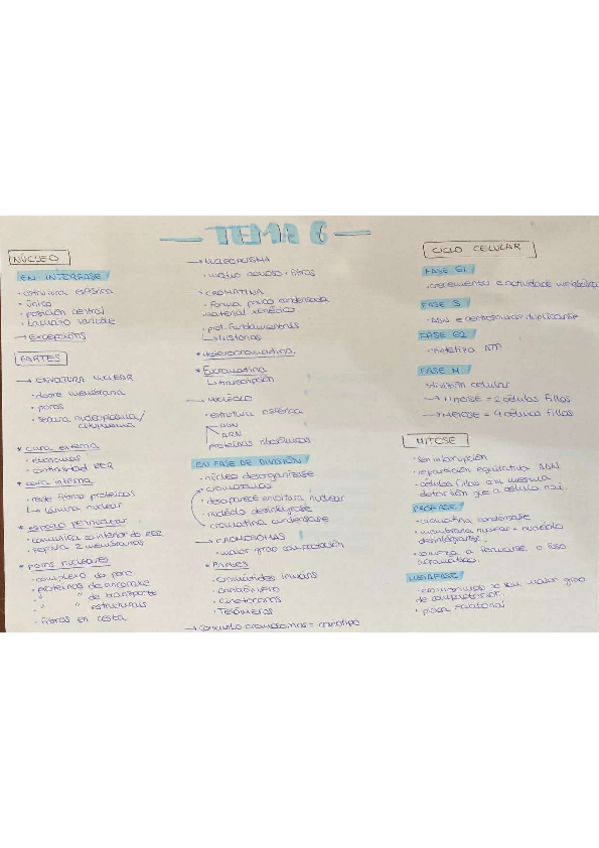 — TEMA 6 —
NÚCLEO
EN INTERFASE
· estrutura esférica
· único
· posición central
· tamaño variable
→ excepcións
PARTES
→ ENVOLTURA NUCLEAR
· dobre membrana
· poros
· separa nucleoplasma/
citoplasma
* cara externa
· ribosomas
· continuidade RER
* cara interna
· rede fibras proteicas
↳ lámina nuclear
* espazo perinuclear
· comunica co interior do RER
· separa 2 membranas
* poros nucleares
· complexo do poro
· proteínas de ancoraxe
" " de transporte
" " estruturais
· fibras en cesta
→ NUCLEOPLASMA
· medio acuoso + fibras
→ CROMATINA
· Forma pouco condensada
material xenético.
· prot. fundamentais
↳ Histonas
* Heterocromatina.
* Eucromatina
↳ transcripción
→ NUCLÉOLO
· estrutura esférica
ADN
ARN
proteínas ribosómicas
EN FASE DE DIVISIÓN
· núcleo desorganízase
· cromosomas
· desaparece envoltura nuclear
· nucléolo desintégrase
· cromatina condénsase
→ CROMOSOMAS
· maior grao compactación
* Partes
· cromátidas irmáns
· centrómero
· cinetocoros
· Telómeros
→ Conxunto cromosomas = cariotipo
CICLO CELULAR
FASE G1
· crecemento e actividade metabólica
FASE S
· ADN e centrosomas duplícanse
FASE G2
· sintetiza ATP
FASE M
· división celular
→ MITOSE = 2 células fillas
→ MEIOSE = 4 células fillas
MITOSE
· sen interrupción
· repartición equitativa ADN.
· células fillas coa mesma
dotación que a célula nai.
PROFASE
· cromatina condénsase
· membrana nuclear + nucléolo
desintégranse.
· comeza a formarse o fuso
acromático.
METAFASE
· cromosomas no seu maior grao
de compactación.
· placa ecuatorial